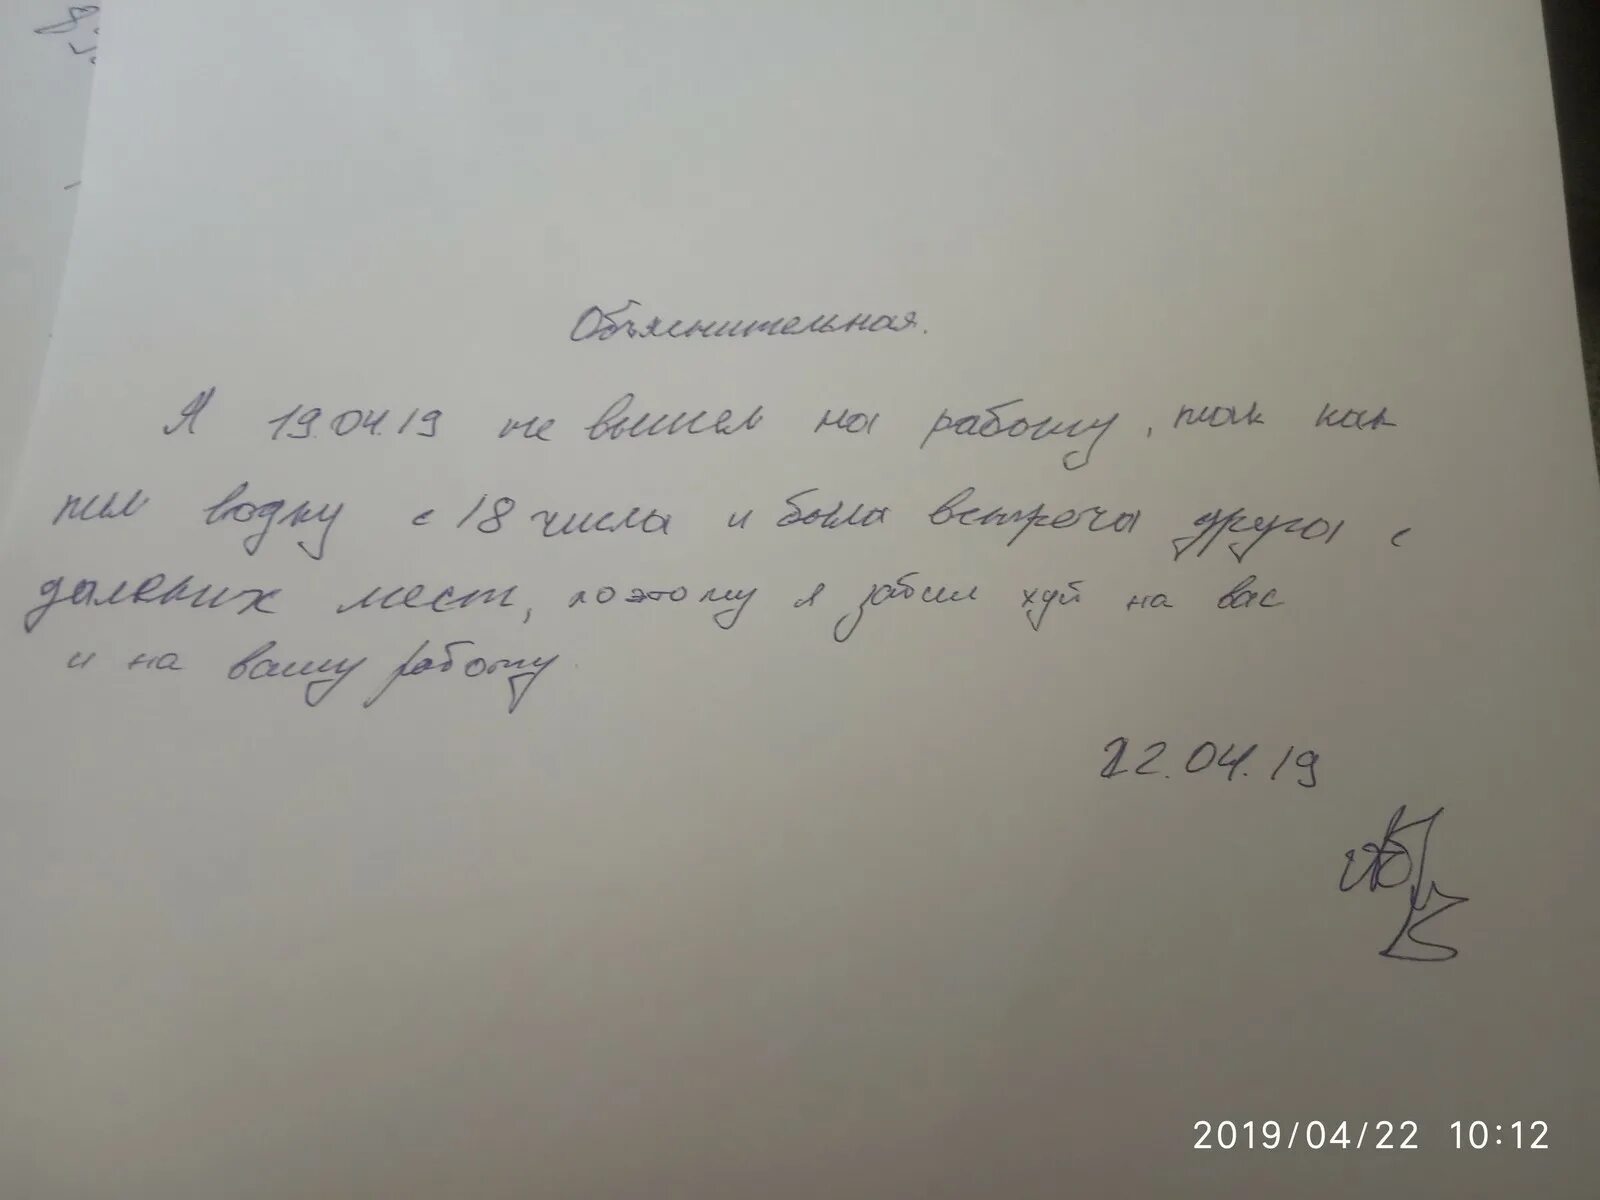 Объяснительная.
Я 19.04.19 не вышел на работу, так как
пил водку с 18 числа и была встреча друга с
дальних мест, поэтому я забил хуй на вас
и на вашу работу.
22.04.19
2019/04/22 10:12